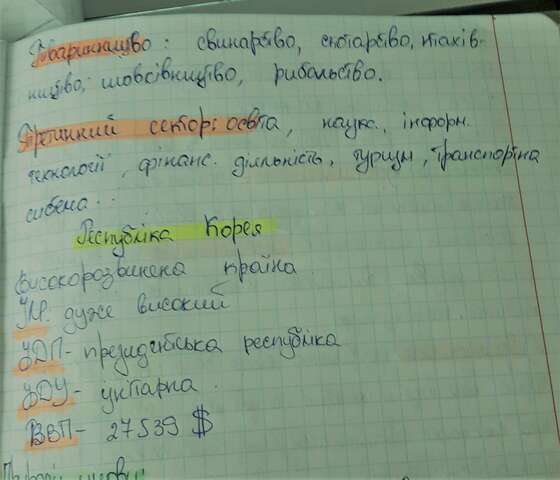 Тваринництво: свинарство, скотарство, птахів-
ництво, шовківництво, рибальство.
Третинний сектор: освіта, наука, інформ.
технології, фінанс. діяльність, туризм, транспортна
система.
Республіка Корея
Високорозвинена країна
ІЛР. дуже високий
ФДП- президентська республіка
ФДУ- унітарна.
ВВП- 27539 $
Природні умови